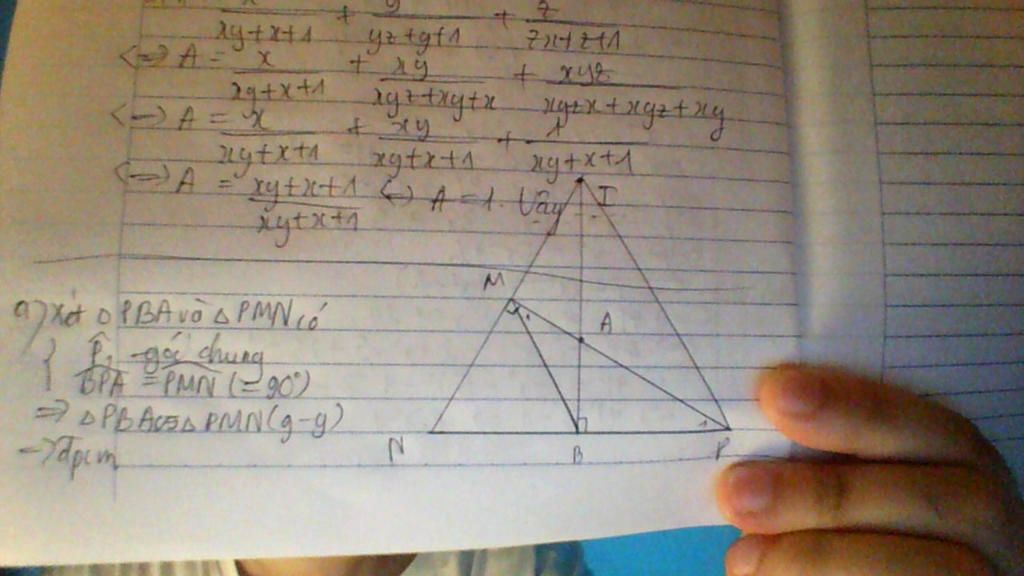 x/(xy+x+1) + y/(yz+y+1) + z/(zx+z+1)
<=> A = x/(xy+x+1) + xy/(xyz+xy+x) + xyz/(xyzx+xyz+xy)
<=> A = x/(xy+x+1) + xy/(xy+x+1) + 1/(xy+x+1)
<=> A = (xy+x+1)/(xy+x+1) <=> A = 1. Vậy
I
M
1
A
N
B
1
P
a) Xét △PBA và △PMN có
{ P̂₁ - góc chung
BPA = PMN (= 90°)
=> △PBA ∽ △PMN (g-g)
-> đpcm